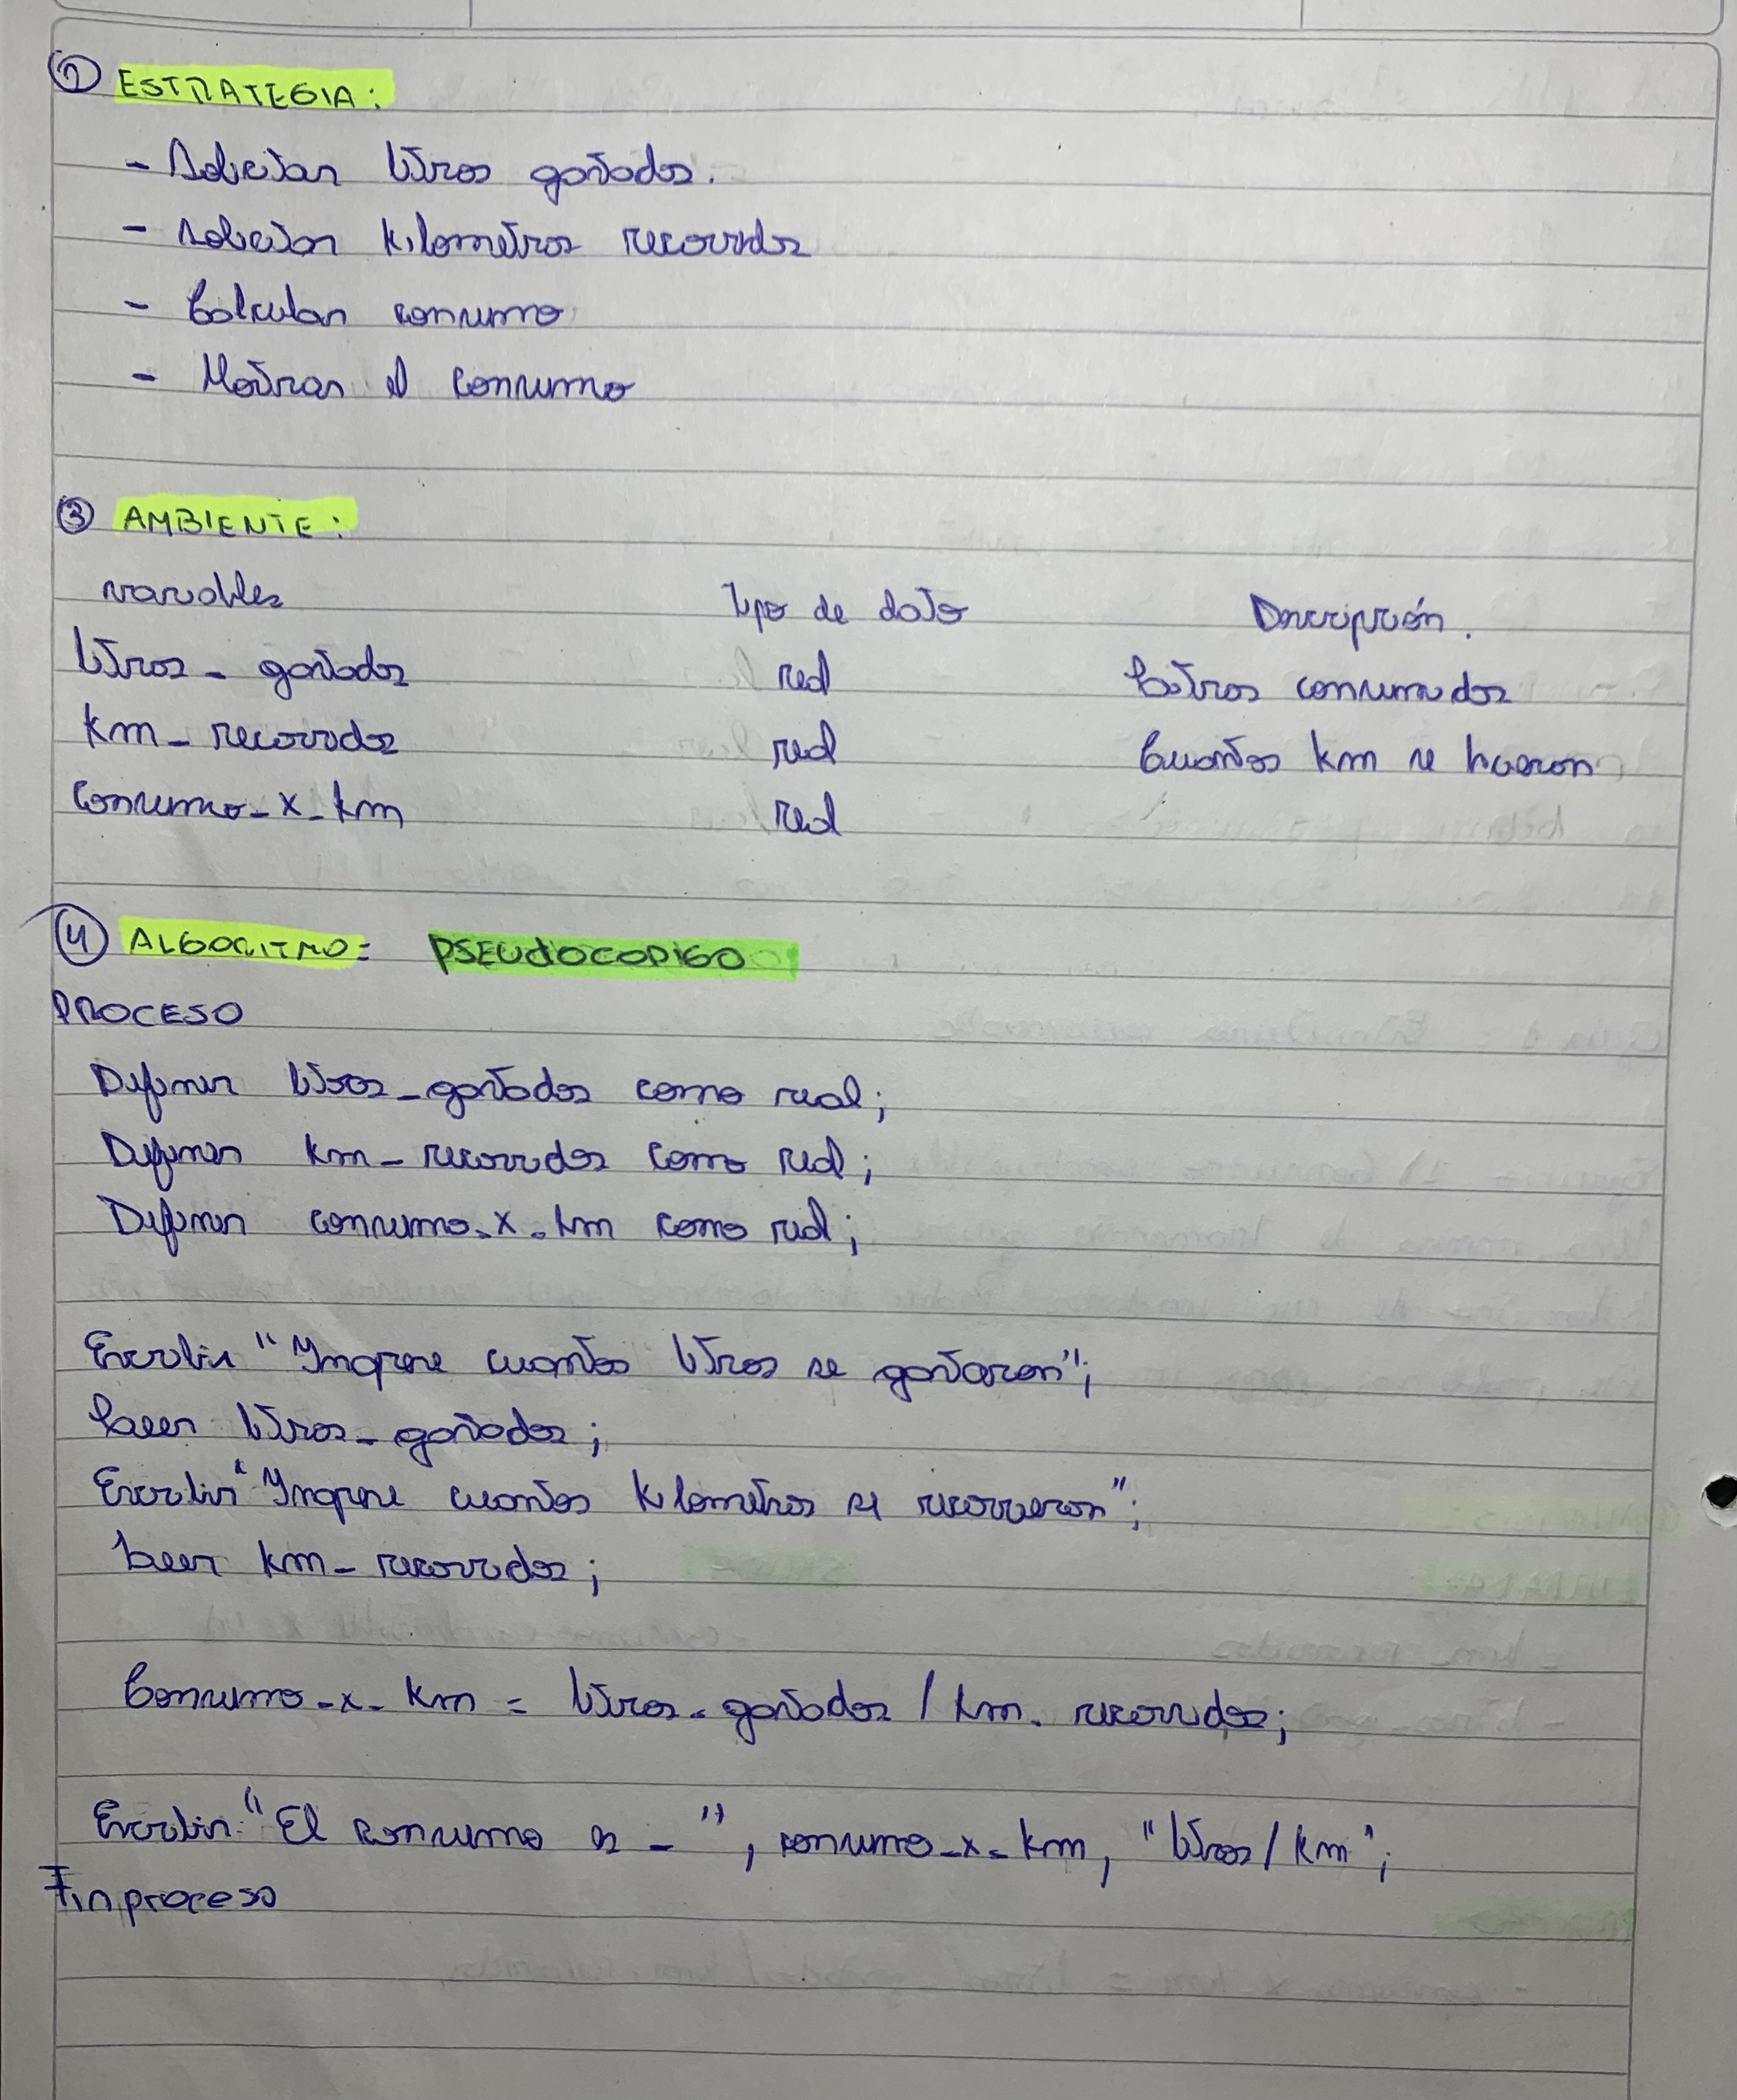 ② ESTRATEGIA:
- Solicitar litros gastados.
- Solicitar kilometros recorridos
- Calcular consumo
- Mostrar el consumo
③ AMBIENTE:
variables Tipo de dato Descripción.
litros_gastados real Litros consumidos
km_recorridos real Cuantos km se hicieron
Consumo_x_km real
④ ALGORITMO: PSEUDOCODIGO
PROCESO
Definir litros_gastados como real;
Definir km_recorridos como real;
Definir consumo_x_km como real;
Escribir "Ingrese cuantos litros se gastaron";
Leer litros_gastados;
Escribir "Ingrese cuantos kilometros se recorrieron";
Leer km_recorridos;
Consumo_x_km = litros_gastados / km_recorridos;
Escribir "El consumo es _", consumo_x_km, "litros/km";
Fin proceso